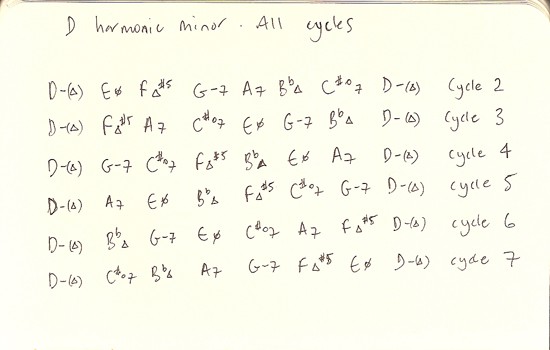 D harmonic minor. All cycles
D-(Δ) Eø FΔ#5 G-7 A7 BbΔ C#o7 D-(Δ) Cycle 2
D-(Δ) FΔ#5 A7 C#o7 Eø G-7 BbΔ D-(Δ) Cycle 3
D-(Δ) G-7 C#o7 FΔ#5 BbΔ Eø A7 D-(Δ) Cycle 4
D-(Δ) A7 Eø BbΔ FΔ#5 C#o7 G-7 D-(Δ) cycle 5
D-(Δ) BbΔ G-7 Eø C#o7 A7 FΔ#5 D-(Δ) cycle 6
D-(Δ) C#o7 BbΔ A7 G-7 FΔ#5 Eø D-(Δ) cycle 7